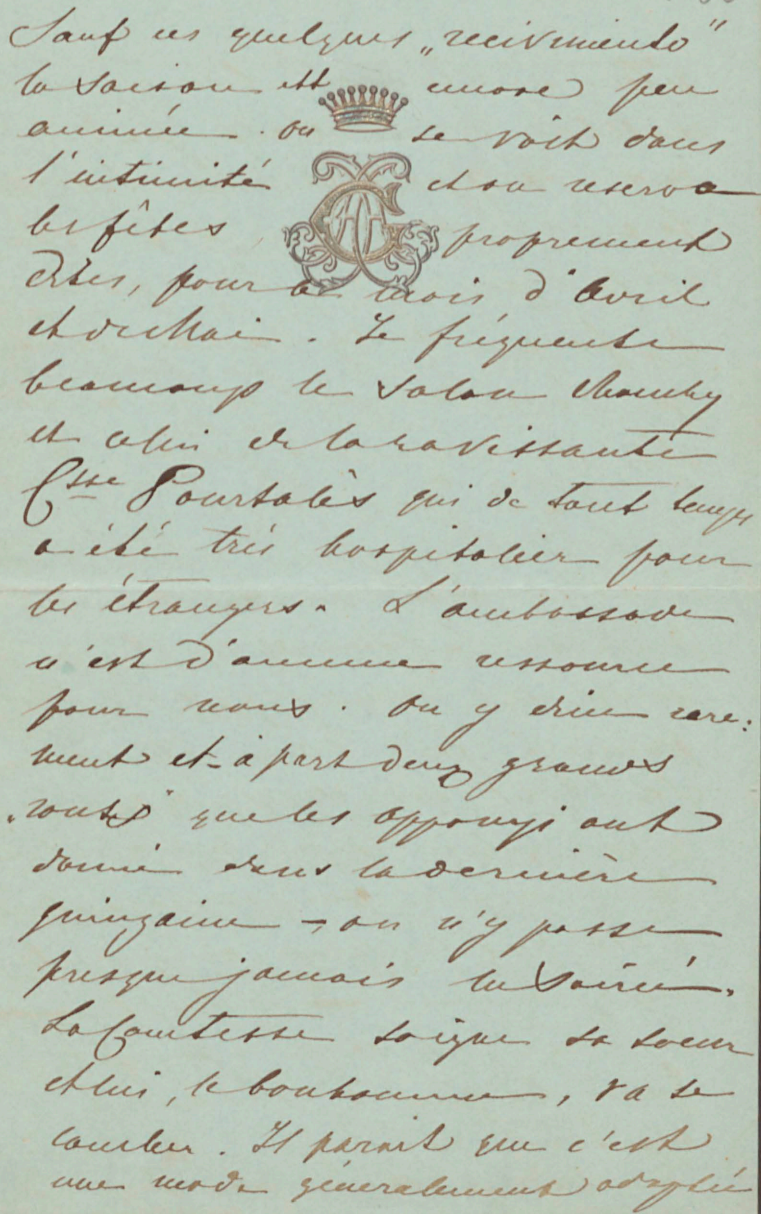 Sauf ces quelques „recivimiento"
la saison est encore peu
animée. On se voit dans
l'intimité et on reserve
les fêtes, proprement
dites, pour le mois d'Avril
et de Mai. Je fréquente
beaucoup le salon
et celui de la ravissante
Csse Pourtalès qui de tout temps
a été très hospitalier pour
les étrangers. L'ambassade
n'est d'aucune ressource
pour nous. On y dine rare:
ment et à part deux grands
„routs" que les Apponyi ont
donné dans la dernière
quinzaine – on n'y passe
presque jamais la soirée.
La Comtesse soigne sa soeur
et lui, le bonhomme, va se
coucher. Il parait que c'est
une mode généralement adoptée